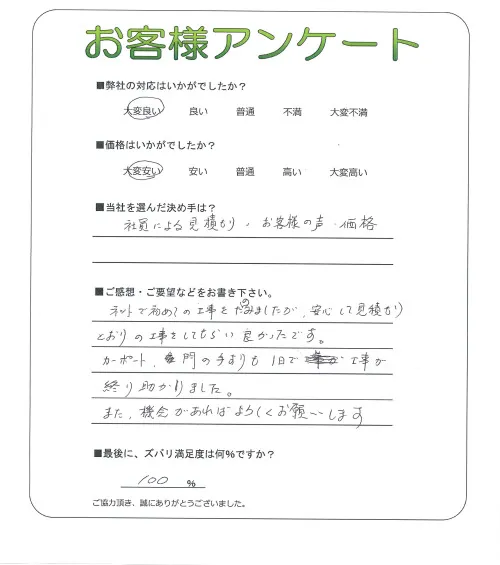 お客様アンケート
■弊社の対応はいかがでしたか？
大変良い 良い 普通 不満 大変不満
■価格はいかがでしたか？
大変安い 安い 普通 高い 大変高い
■当社を選んだ決め手は？
社員による見積もり、お客様の声・価格
■ご感想・ご要望などをお書き下さい。
ネットで初めての工事をたのみましたが、安心して見積り
とおりの工事をしてもらい良かったです。
カーポート、門の手すりも1日で工事が
終り助かりました。
また、機会があればよろしくお願いします
■最後に、ズバリ満足度は何%ですか？
100 %
ご協力頂き、誠にありがとうございました。